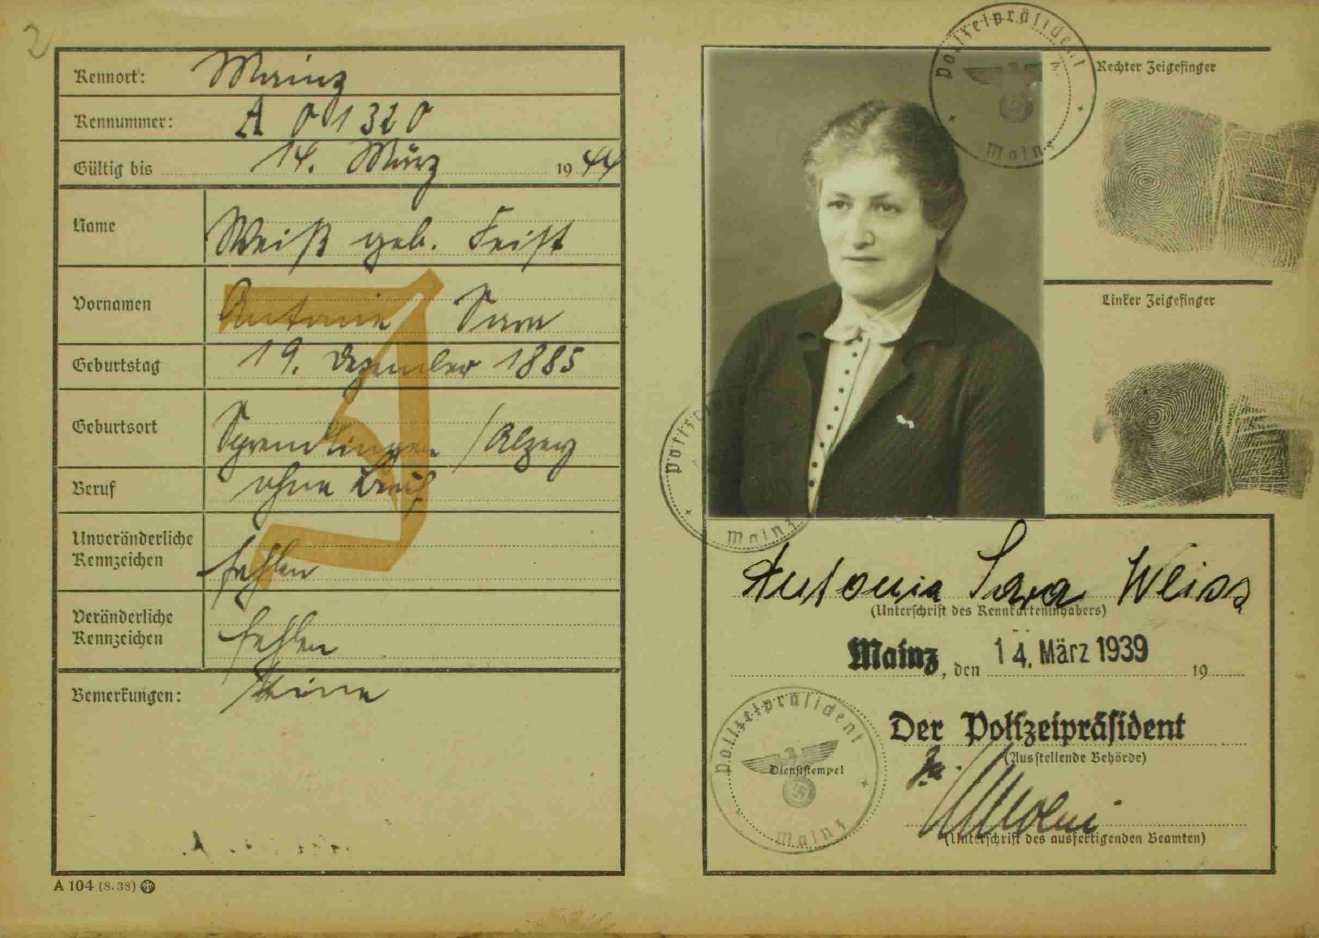 2
Kennort: Mainz
Kennummer: A 01320
Gültig bis 14. März 1944
Name Weiß geb. Feist
Vornamen Antonie Sara
Geburtstag 19. Dezember 1885
Geburtsort Sprendlingen / Alzey
Beruf ohne Beruf
Unveränderliche Kennzeichen fehlen
Veränderliche Kennzeichen fehlen
Bemerkungen: Keine
J
A 104 (8. 38)
Polizeipräsident
Mainz
Rechter Zeigefinger
Linker Zeigefinger
Polizeipräsident
Mainz
Antonia Sara Weiss
(Unterschrift des Kennkarteninhabers)
Mainz, den 14. März 1939 19
Der Polizeipräsident
(Ausstellende Behörde)
Polizeipräsident
Dienststempel
Mainz
(Unterschrift des ausfertigenden Beamten)